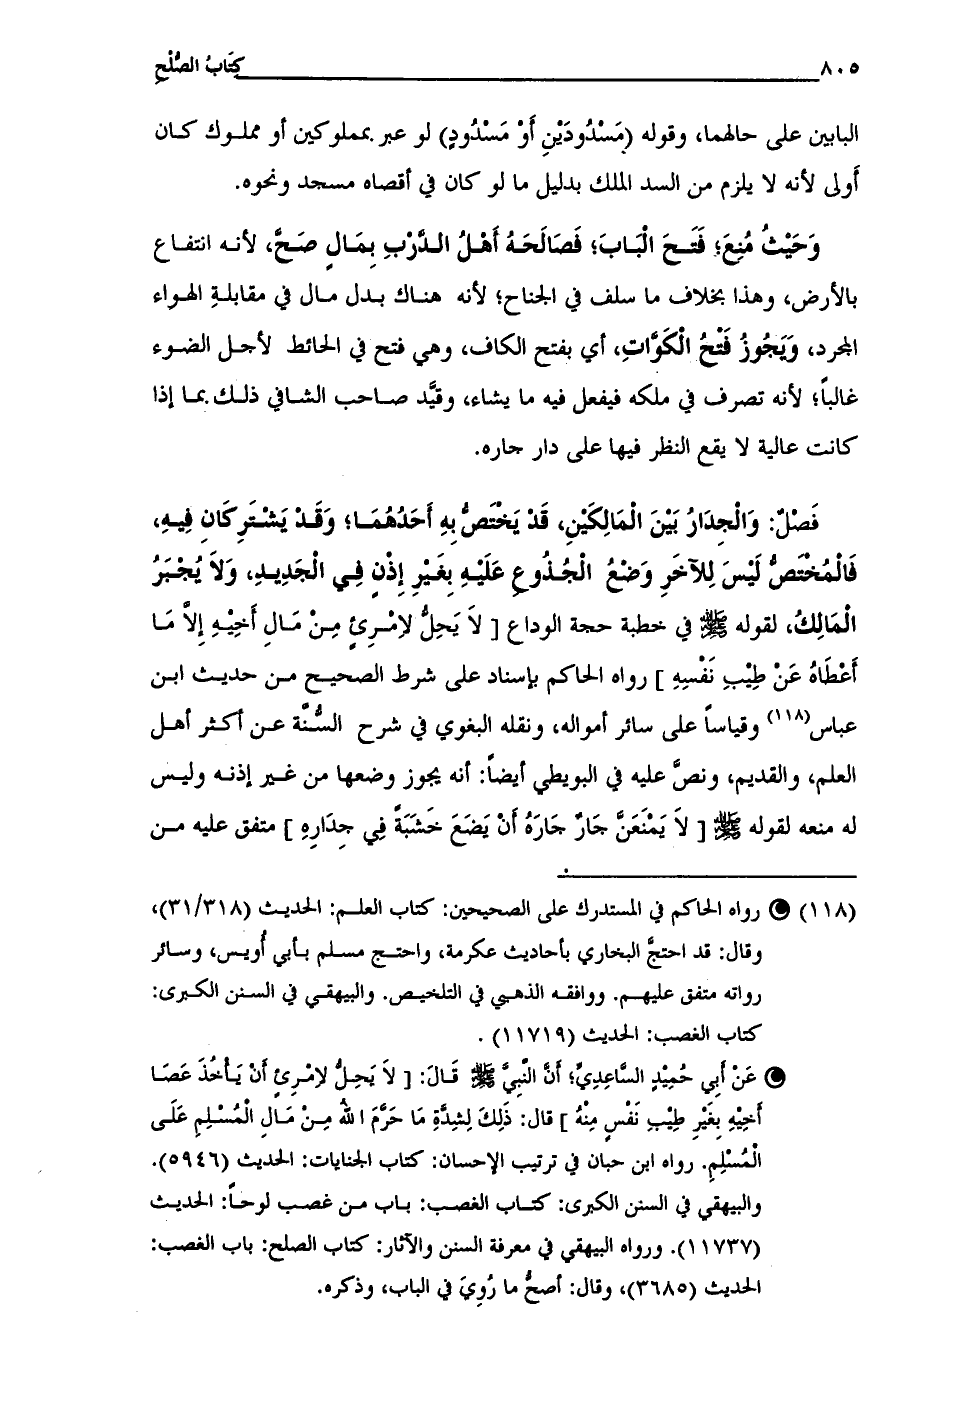 ٨٠٥ كتَابُ الصُّلْحِ
البابين على حالهما، وقوله (مَسْدُودَيْنِ أَوْ مَسْدُودٍ) لو عبر بمملوكين أو مملوك كان
أولى لأنه لا يلزم من السد الملك بدليل ما لو كان في أقصاه مسجد ونحوه.
وَحَيْثُ مُنِعَ؛ فَتَحَ الْبَابَ؛ فَصَالَحَهُ أَهْلُ الدَّرْبِ بِمَالٍ صَحَّ، لأنه انتفاع
بالأرض، وهذا بخلاف ما سلف في الجناح؛ لأنه هناك بدل مال في مقابلةِ الهواء
المجرد، وَيَجُوزُ فَتْحُ الْكَوَّاتِ، أي بفتح الكاف، وهي فتح في الحائط لأجل الضوء
غالباً؛ لأنه تصرف في ملكه فيفعل فيه ما يشاء، وقيَّد صاحب الشافي ذلك بما إذا
كانت عالية لا يقع النظر فيها على دار جاره.
فَصْلٌ: وَالْجِدَارُ بَيْنَ الْمَالِكَيْنِ، قَدْ يَخْتَصُّ بِهِ أَحَدُهُمَا؛ وَقَدْ يَشْتَرِكَانِ فِيهِ،
فَالْمُخْتَصُّ لَيْسَ لِلآخَرِ وَضْعُ الْجُذُوعِ عَلَيْهِ بِغَيْرِ إِذْنٍ فِي الْجَدِيدِ، وَلاَ يُجْبَرُ
الْمَالِكُ، لقوله ﷺ في خطبة حجة الوداع [ لاَ يَحِلُّ لإمْرِئٍ مِنْ مَالِ أَخِيْهِ إِلاَّ مَا
أَعْطَاهُ عَنْ طِيْبِ نَفْسِهِ ] رواه الحاكم بإسناد على شرط الصحيح من حديث ابن
عباس(١١٨) وقياساً على سائر أمواله، ونقله البغوي في شرح السُّنَّة عن أكثر أهل
العلم، والقديم، ونصَّ عليه في البويطي أيضاً: أنه يجوز وضعها من غير إذنه وليس
له منعه لقوله ﷺ [ لاَ يَمْنَعَنَّ جَارٌ جَارَهُ أَنْ يَضَعَ خَشَبَةً فِي جِدَارِهِ ] متفق عليه من
(١١٨) رواه الحاكم في المستدرك على الصحيحين: كتاب العلم: الحديث (٣١/٣١٨)،
وقال: قد احتجَّ البخاري بأحاديث عكرمة، واحتج مسلم بأبي أُويس، وسائر
رواته متفق عليهم. ووافقه الذهبي في التلخيص. والبيهقي في السنن الكبرى:
كتاب الغصب: الحديث (١١٧١٩) .
عَنْ أَبِي حُمِيْدٍ السَّاعِدِيِّ؛ أَنَّ النَّبِيَّ ﷺ قَالَ: [ لاَ يَحِلُّ لإمْرِئٍ أَنْ يَأْخُذَ عَصَا
أَخِيْهِ بِغَيْرِ طِيْبِ نَفْسٍ مِنْهُ ] قال: ذَلِكَ لِشِدَّةِ مَا حَرَّمَ اللهُ مِنْ مَالِ الْمُسْلِمِ عَلَى
الْمُسْلِمِ. رواه ابن حبان في ترتيب الإحسان: كتاب الجنايات: الحديث (٥٩٤٦).
والبيهقي في السنن الكبرى: كتاب الغصب: باب من غصب لوحاً: الحديث
(١١٧٣٧). ورواه البيهقي في معرفة السنن والآثار: كتاب الصلح: باب الغصب:
الحديث (٣٦٨٥)، وقال: أصحُّ ما رُوِيَ في الباب، وذكره.